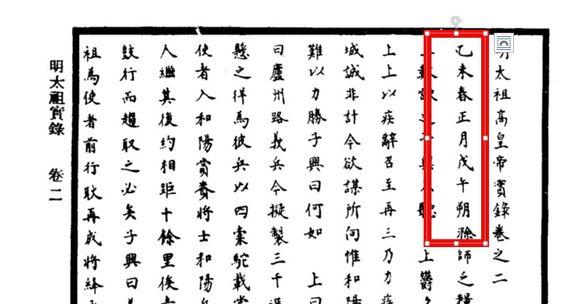 太祖高皇帝實錄卷之二
乙未春正月戊午朔滁師之糧
子興 上鬱
上上以疾辭召至再三乃力疾
城誠非計今欲謀所向惟和陽
難以力勝子興曰何如 上曰
曰廬州路義兵今擬製三千
懸之佯為彼兵以四橐駝載
使者入和陽賞賚將士和陽
人繼其後約相距十餘里俟
鼓行而趨取之必矣子興曰
祖為使者前行耿再成將絳
明太祖實錄 卷二